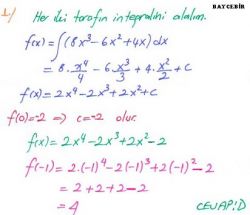 BAY CEBİR
1) Her iki tarafın integralini alalım.
f(x) = ∫(8x³ - 6x² + 4x) dx
= 8 · x⁴/4 - 6 · x³/3 + 4 · x²/2 + c
f(x) = 2x⁴ - 2x³ + 2x² + c
f(0) = -2 ⇒ c = -2 olur.
f(x) = 2x⁴ - 2x³ + 2x² - 2
f(-1) = 2·(-1)⁴ - 2(-1)³ + 2(-1)² - 2
= 2 + 2 + 2 - 2
= 4
CEVAP: D